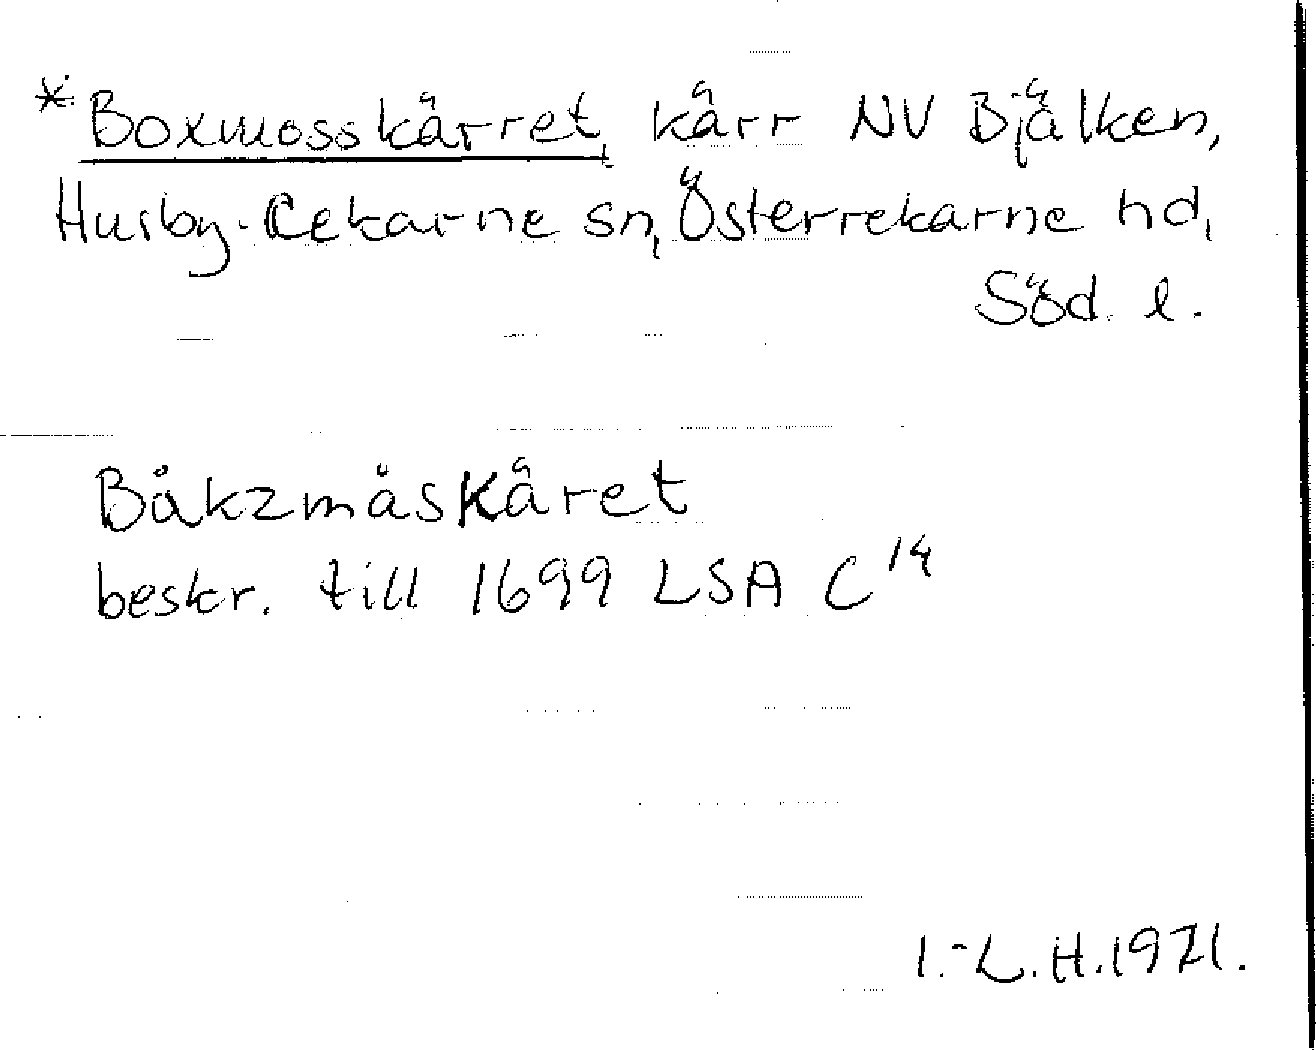 *Boxmosskärret, kärr NV Bjälken,
Husby-Rekarne sn, Österrekarne hd,
Söd. l.
Båkzmåskäret
beskr. till 1699 LSA C 14
I.-L.H.1971.